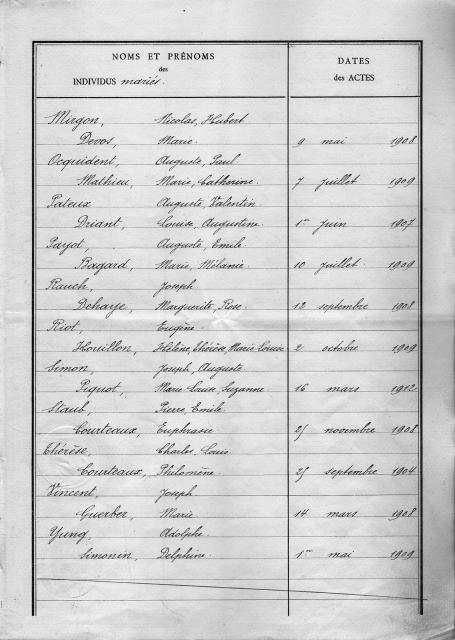 NOMS ET PRÉNOMS DATES
des
INDIVIDUS mariés. des ACTES
Mirgon, Nicolas, Hubert
Devos, Marie. 9 mai 1908
Ocquident, Auguste, Paul
Mathieu, Marie, Catherine. 7 juillet 1909
Pateux Auguste, Valentin
Driant, Louise, Augustine 1er juin 1907
Payot, Auguste, Emile
Bagard, Marie, Mélanie. 10 juillet. 1909
Rauch, Joseph.
Deharye, Marguerite, Rose. 12 septembre 1908
Riot, Eugène.
Houillon, Hélène, Thérèse, Marie-Louise 2 octobre 1909
Simon, Joseph, Auguste
Piquot, Marie-Louise, Suzanne. 16 mars 1912
Staub, Pierre, Emile.
Courteaux, Euphrasie 25 novembre 1908
Thérèse, Charles, Louis
Courteaux, Philomène 25 septembre 1904
Vincent, Joseph
Guerber, Marie. 14 mars 1908
Yung, Adolphe.
Simonin, Delphine. 1er mai 1909